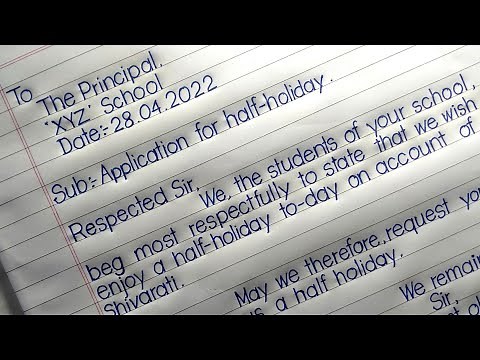 To
The Principal,
'XYZ' School
Date:- 28.04.2022
Sub:- Application for half-holiday.
Respected Sir,
We, the students of your school,
beg most respectfully to state that we wish
enjoy a half-holiday to-day on account of
Shivarati.
May we therefore, request you
a half holiday.
We remain
Sir,